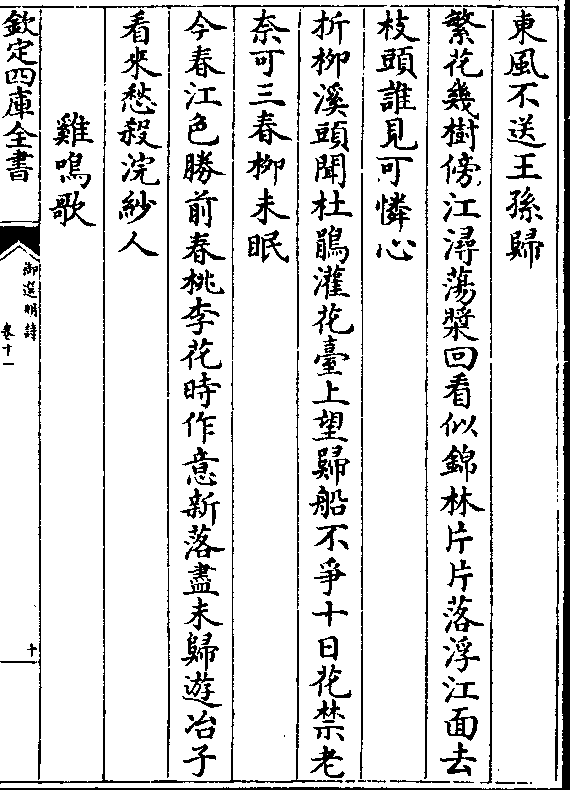 東風不送王孫歸
繁花幾樹傍江潯蕩槳回看似錦林片片落浮江面去
枝頭誰見可憐心
折柳溪頭聞杜鵑灌花臺上望歸船不爭十日花禁老
奈可三春柳未眠
今春江色勝前春桃李花時作意新落盡未歸遊冶子
看來愁殺浣紗人
雞鳴歌
欽定四庫全書
御選明詩
卷十一
十